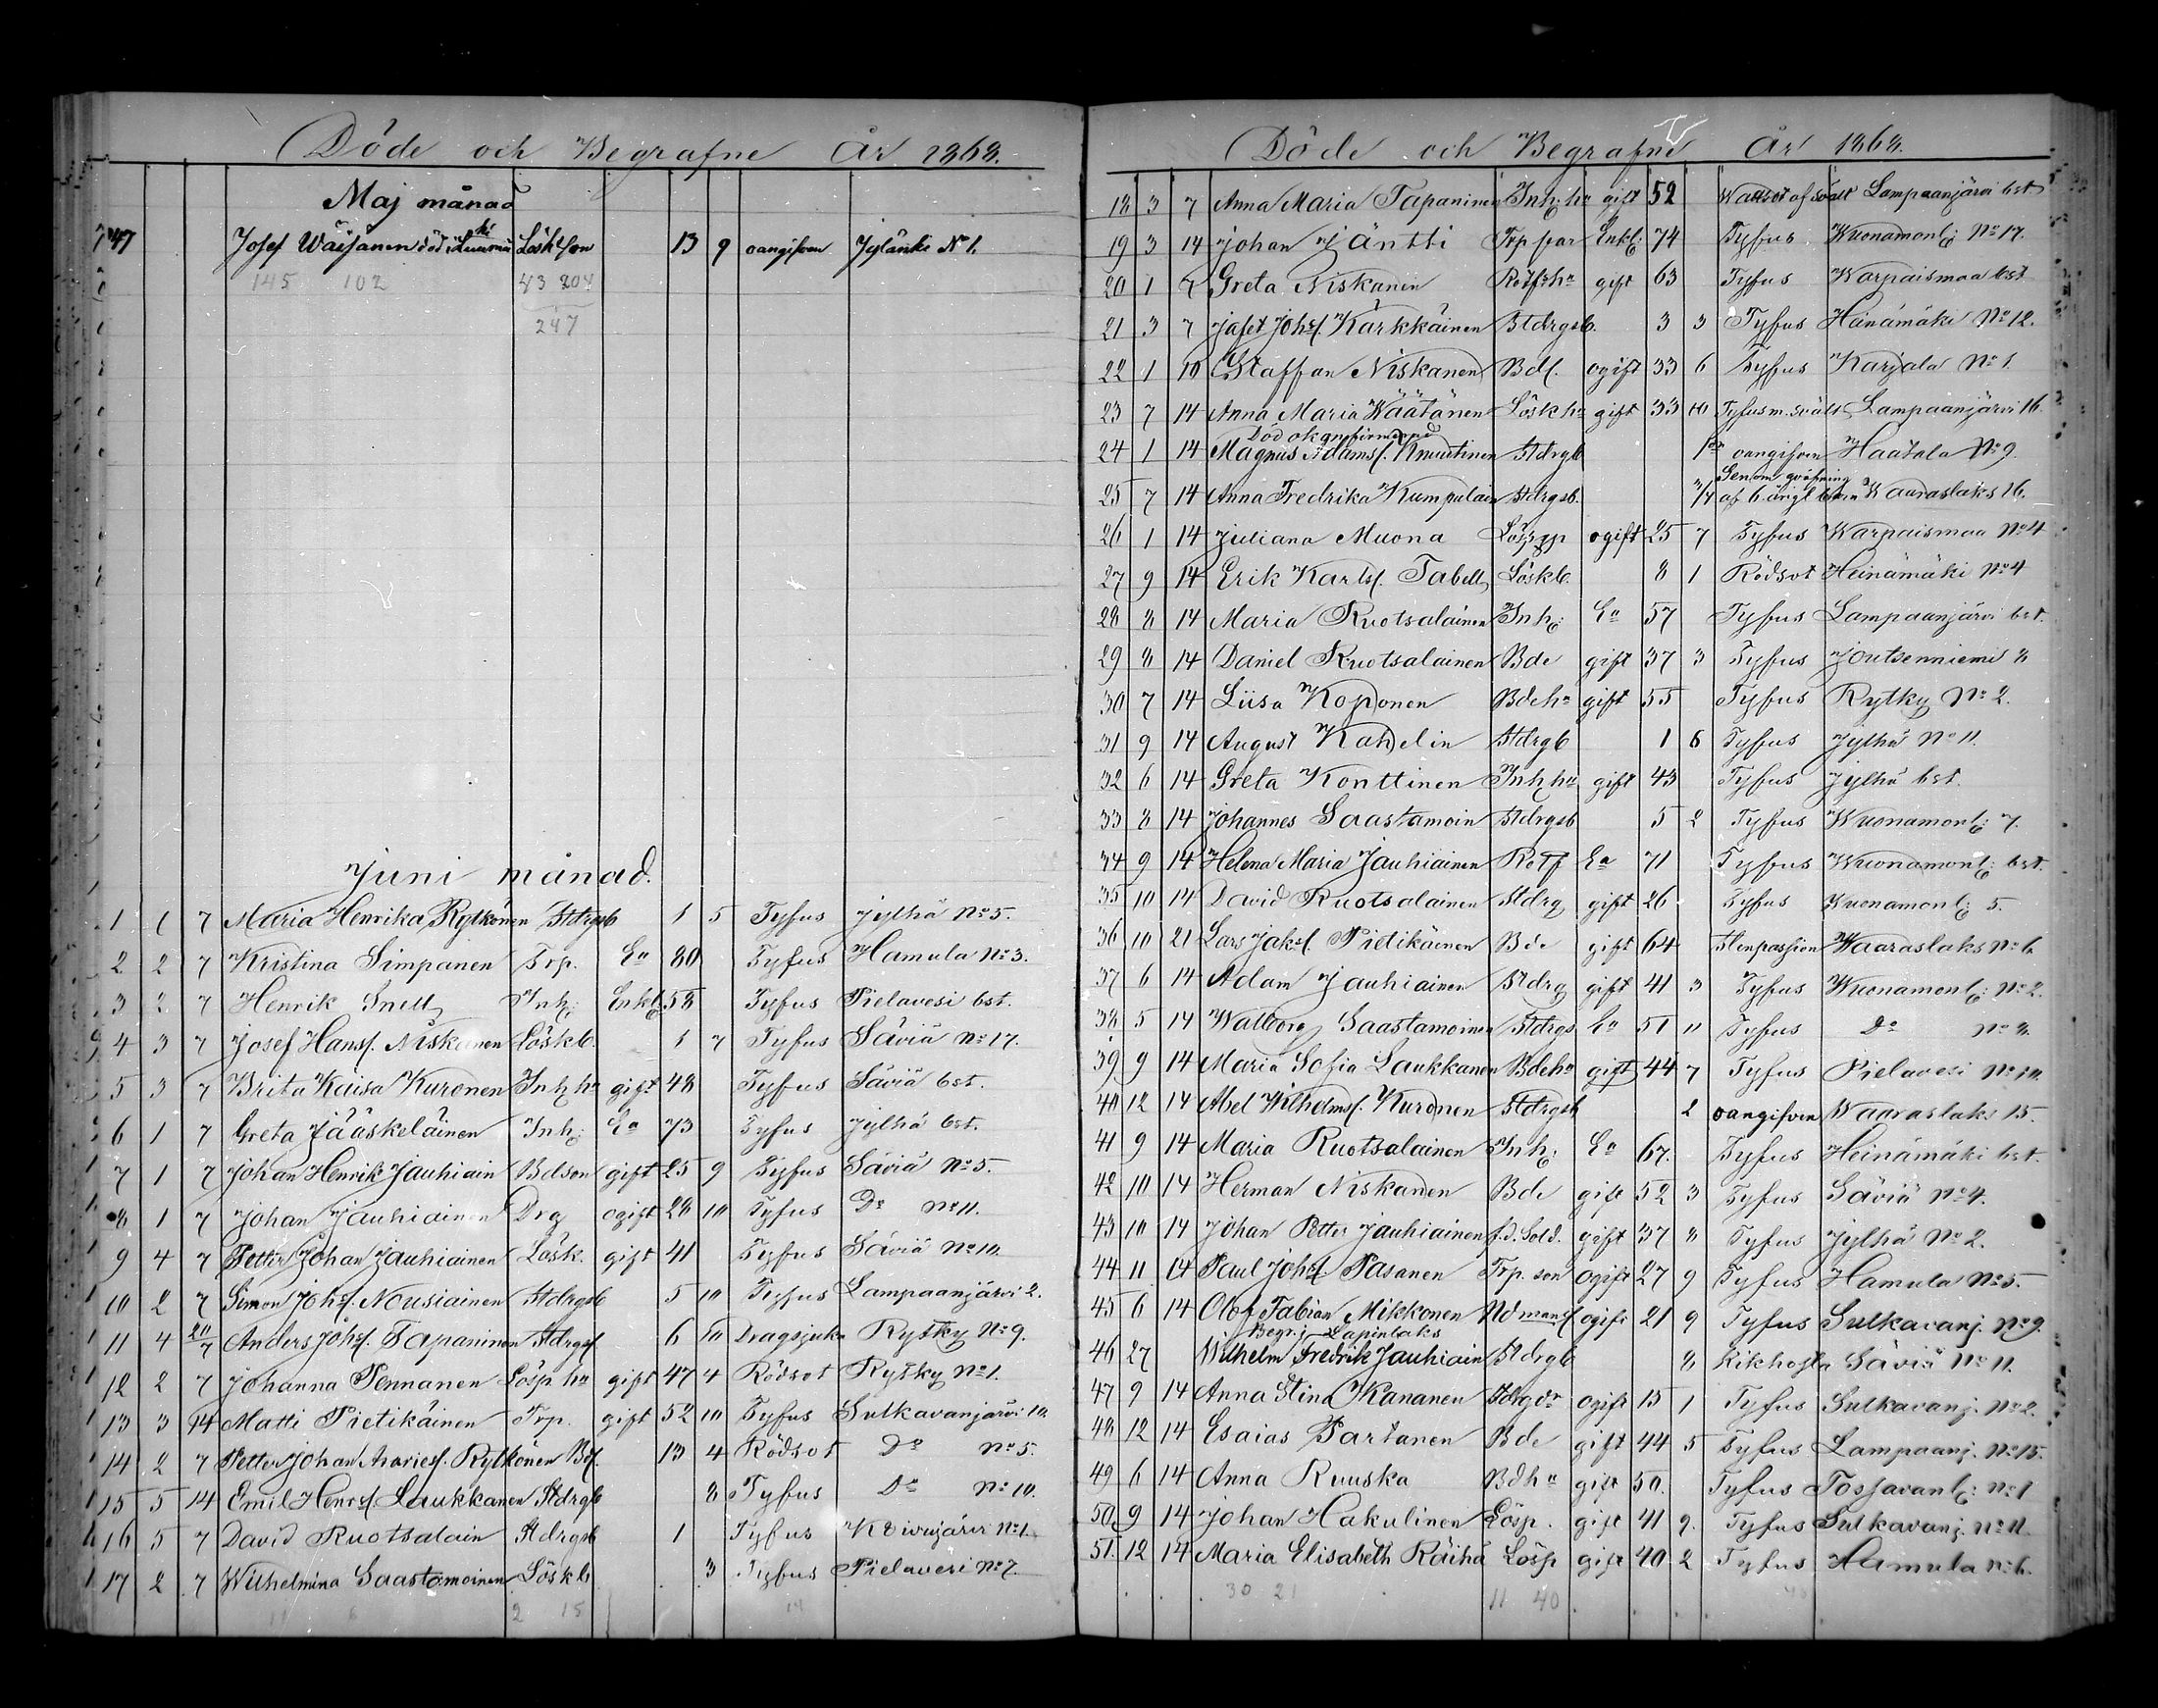 Döde och Begrafne År 1868.
Maj månad
247 Josef Wäisänen död i Löskson 13 9 oangifven Jylänki No 1.
145 102 43 204
247
Juni månad.
1 1 7 Maria Henrika Rytkönen Stdrgsb 1 5 Tyfus Jylhä No 5.
2 2 7 Kristina Simpanen Trp. Ea 80 Tyfus Hamula No 3.
3 2 7 Henrik Snell Inh: Enkl 58 Tyfus Pielavesi bst.
4 3 7 Josef Hanss. Niskanen Löskb. 1 7 Tyfus Säviä No 17.
5 3 7 Brita Kaisa Kuronen Inh hu gift 48 Tyfus Säviä bst.
6 1 7 Greta Jääskeläinen Inh: Ea 73 Tyfus Jylhä bst.
7 1 7 Johan Henrik Jauhiain Bdson gift 25 9 Tyfus Säviä No 5.
8 1 7 Johan Jauhiainen Drg ogift 28 10 Tyfus Do No 11.
9 4 7 Petter Johan Jauhiainen Lösk. gift 41 Tyfus Säviä No 10.
10 2 7 Simon Johs. Nousiainen Stdrgsb 5 10 Tyfus Lampaanjärvi 2.
11 4 20/7 Anders Johs. Tapaninen Stdrgs 6 10 Dragsjuka Rytky No 9.
12 2 7 Johanna Pennanen Lösp hu gift 47 4 Rödsot Rytky No 1.
13 3 14 Matti Pietikäinen Trp. gift 52 10 Tyfus Sulkavanjärvi 10.
14 2 7 Petter Johan Rytkönen Bds. 13 4 Rödsot Do No 5.
15 5 14 Emil Henrs. Laukkanen Stdrgb 8 Tyfus Do No 10.
16 5 7 David Ruotsalain Stdrgsb 1 Tyfus Koivujärvi No 1.
17 2 7 Wilhelmina Saastamoinen Löskb 3 Tyfus Pielavesi No 7.
2 15
Döde och Begrafne År 1868.
18 3 7 Anna Maria Tapaninen Inh: hu gift 52 Wattsot af svält Lampaanjärvi bst
19 3 14 Johan Jäntti Trp far Enkl: 74 Tyfus Wuonamonl: No 17.
20 1 7 Greta Niskanen Rotfrhu gift 63 Tyfus Warpaismaa bst
21 3 7 Jafet Johs. Kärkkäinen Stdrgsb. 3 3 Tyfus Heinämäki No 12.
22 1 10 Staffan Niskanen Bds. ogift 33 6 Tyfus Karjala No 1.
23 7 14 Anna Maria Wäätänen Löskhu gift 33 10 Tyfus m. svält Lampaanjärvi 16.
Död okonfirmerad
24 1 14 Magnus Adams. Knuutinen Stdrgb oangifven Haatala No 9.
Genom qväfning
25 7 14 Anna Fredrika Kumpulain Stdrgsb. 3/4 af 6 årigt barn Waaraslaks 26.
26 1 14 Juliana Muona Löspp ogift 25 7 Tyfus Warpaismaa No 4
27 9 14 Erik Karls. Tabell Löskb. 8 1 Rödsot Heinämäki No 4
28 8 14 Maria Ruotsalainen Inh: Ea 57 Tyfus Lampaanjärvi bst.
29 8 14 Daniel Ruotsalainen Bde gift 37 3 Tyfus Joutsenniemi 8
30 7 14 Liisa Koponen Bdehu gift 55 Tyfus Rytky No 2.
31 9 14 August Kahelin Stdrgb 1 6 Tyfus Jylhä No 11.
32 6 14 Greta Konttinen Inh hu gift 43 Tyfus Jylhä bst.
33 8 14 Johannes Saastamoin Stdrgsb 5 2 Tyfus Wuonamonl: 7.
34 9 14 Helena Maria Jauhiainen Rotf Ea 71 Tyfus Wuonamonl: bst.
35 10 14 David Ruotsalainen Stdrg gift 26 Tyfus Wuonamonl: 5.
36 10 21 Lars Jaks. Pietikäinen Bde gift 64 Stenpassion Waaraslaks No 6.
37 6 14 Adam Jauhiainen Stdrg gift 41 3 Tyfus Wuonamonl: No 2.
38 5 14 Walborg Saastamoinen Stdrgs Ea 51 11 Tyfus Do No 8.
39 9 14 Maria Sofia Laukkanen Bdehu gift 44 7 Tyfus Pielavesi No 10.
40 12 14 Abel Wilhelms. Kuronen Stdrgsb 2 oangifven Waaraslaks 15.
41 9 14 Maria Ruotsalainen Inh: Ea 67. Tyfus Heinämäki bst.
42 10 14 Herman Niskanen Bde gift 52 3 Tyfus Säviä No 4.
43 10 14 Johan Petter Jauhiainen f.d. Sold. gift 37 8 Tyfus Jylhä No 2.
44 11 14 Paul Johs Pasanen Trp. son ogift 27 9 Tyfus Hamula No 5.
45 6 14 Olof Fabian Mikkonen Ndmans ogift 21 9 Tyfus Sulkavanj. No 9.
Begr. i Lapinlaks
46 27 Wilhelm Fredrik Jauhiain Stdrgb 8 Kikhosta Säviä No 11.
47 9 14 Anna Stina Kananen Stdrgdr ogift 15 1 Tyfus Sulkavanj. No 2.
48 12 14 Esaias Partanen Bde gift 44 5 Tyfus Lampaanj. No 15.
49 6 14 Anna Ruuska Bdhu gift 50. Tyfus Tossavanl: No 1
50 9 14 Johan Hakulinen Lösp. gift 41 9. Tyfus Sulkavanj. No 11.
51. 12 14 Maria Elisabeth Räihä Lösp gift 40 2 Tyfus Hamula No 6.
30 21 11 40